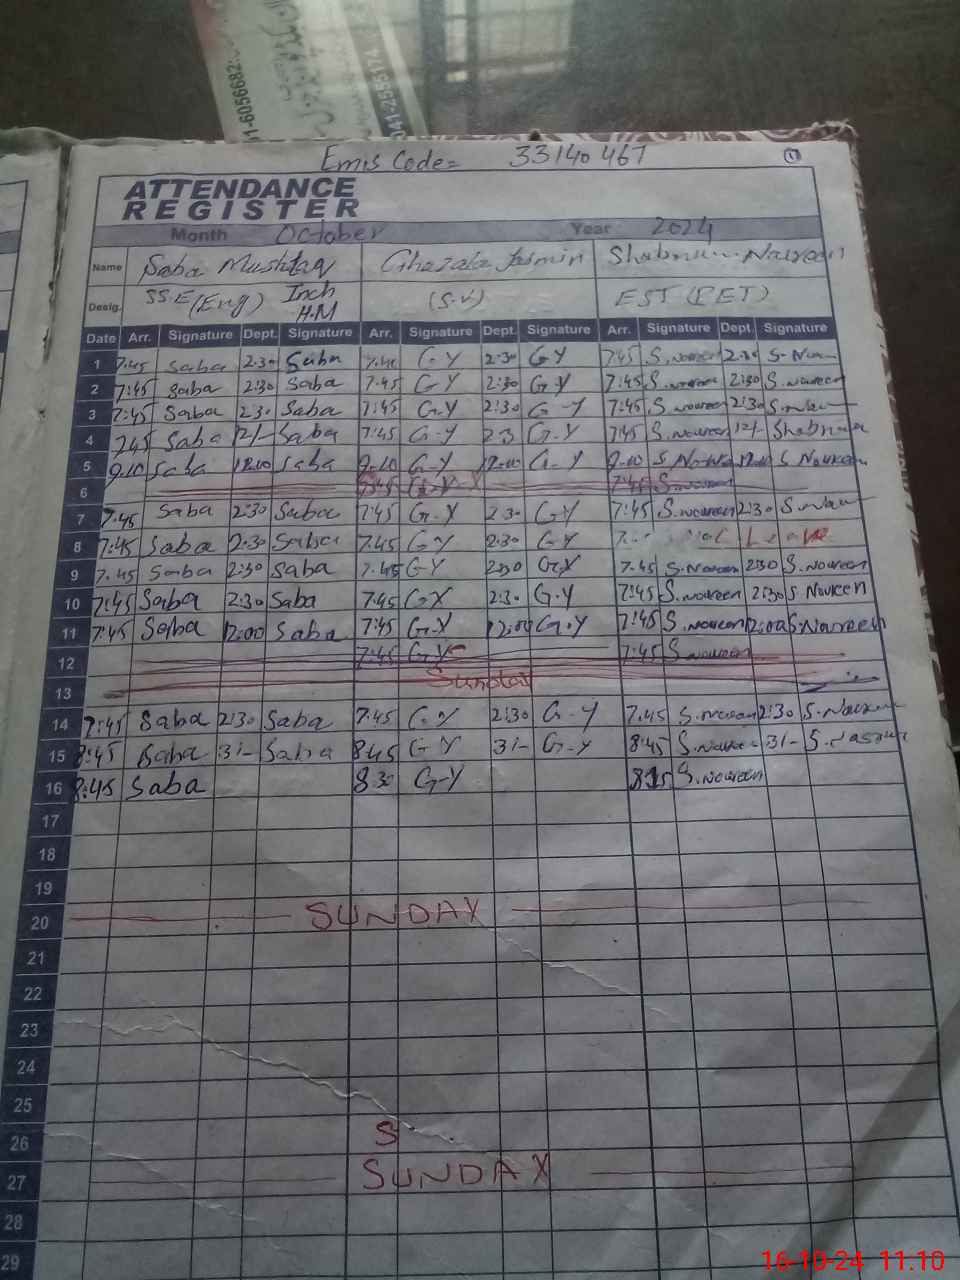 1-6056682
041-2556374
Emis Code= 33140467
ATTENDANCE
REGISTER
Month October Year 2024
Name Saba Mushtaq Ghazala Jasmin Shabnum Naureen
Desig. SS.E (Eng) Inch H.M (S.V) EST (PET)
Date Arr. Signature Dept. Signature Arr. Signature Dept. Signature Arr. Signature Dept. Signature
1 7:45 Saba 2:30 Saba G-Y 2:30 G-Y 7:45 S.Noureen 2:30
2 7:45 Saba 2:30 Saba 7:45 G-Y 2:30 G-Y 7:45 S.Noureen 2:30 S.Noureen
3 7:45 Saba 2:30 Saba 7:45 G-Y 2:30 G-Y 7:45 S.Noureen 2:30
4 745 Saba 12/- Saba 7:45 G-Y 2:3 G-Y 7:45 S.Noureen 12/-
5 9-10 Saba 12.10 Saba 9-10 G-Y G-Y 9-10 S Noureen
6 7:45 S.Noureen
7 7:45 Saba 2:30 Saba 7:45 G-Y 2:30 G-Y 7:45 S.Noureen 2:30
8 7:45 Saba 2:30 Saba 7.45 G-Y 2:30 G-Y Leave
9 7.45 Saba 2:30 Saba 7.45 G-Y 2:30 G-Y 7.45 S.Noreen 2:30 S.Noureen
10 7:45 Saba 2:30 Saba 7:45 G-Y 2:30 G-Y 7:45 S.Noureen 2:30 S Noureen
11 7:45 Saba 12:00 Saba 7:45 G-Y 12:00 G-Y 7:45 S.Noureen 12:00 S.Naureen
12 7:45 G-Y 7:45 S.Noureen
13 Sunday
14 7:45 Saba 2:30 Saba 7:45 G-Y 2:30 G-Y 7.45 S.Noureen 2:30
15 8:45 Saba 3/- Saba 8:45 G-Y 3/- G-Y 8:45 S.Noureen 3/-
16 8:45 Saba 8:30 G-Y S.Noureen
17
18
19
20 SUNDAY
21
22
23
24
25
26 S
27 SUNDAY
28
29
16-10-24 11.10